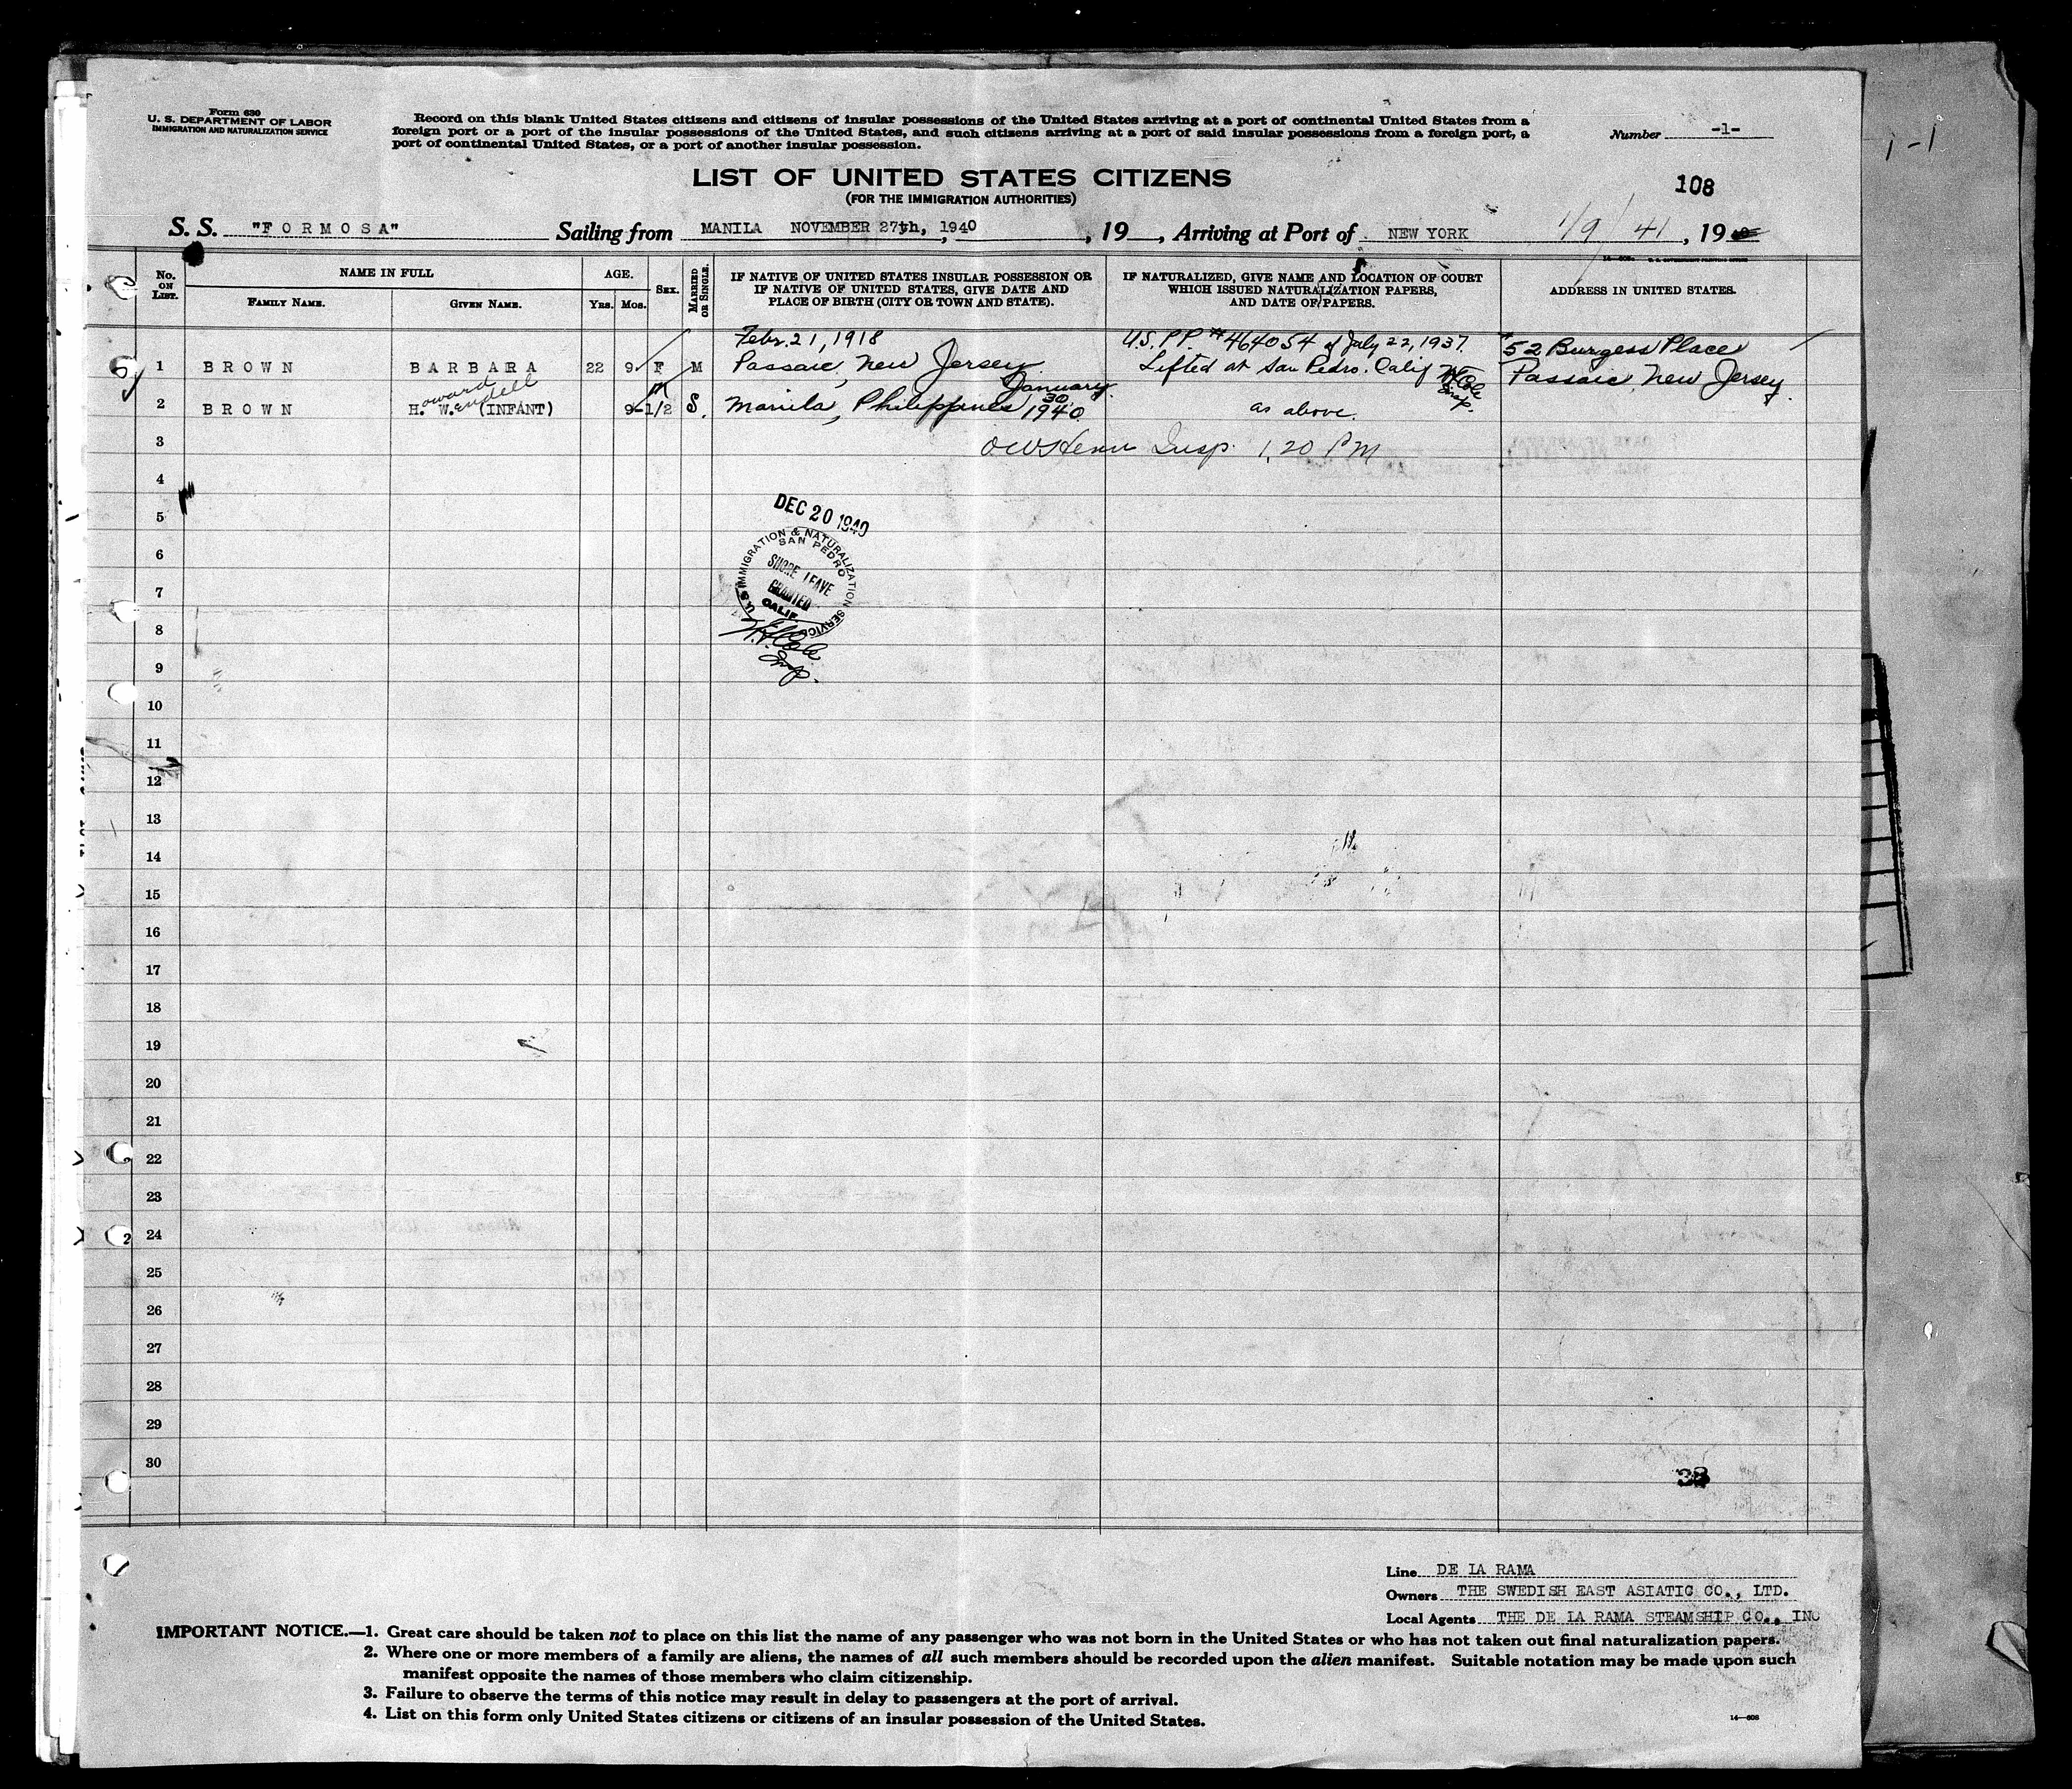 Form 630
U. S. DEPARTMENT OF LABOR
IMMIGRATION AND NATURALIZATION SERVICE
Record on this blank United States citizens and citizens of insular possessions of the United States arriving at a port of continental United States from a
foreign port or a port of the insular possessions of the United States, and such citizens arriving at a port of said insular possessions from a foreign port, a
port of continental United States, or a port of another insular possession.
Number -1-
1-1
LIST OF UNITED STATES CITIZENS
(FOR THE IMMIGRATION AUTHORITIES)
108
S. S. "FORMOSA" Sailing from MANILA NOVEMBER 27th, 1940, 19__, Arriving at Port of NEW YORK 1/9/41, 19
No. ON LIST.
NAME IN FULL
FAMILY NAME.
GIVEN NAME.
AGE.
YRS.
MOS.
SEX.
MARRIED OR SINGLE.
IF NATIVE OF UNITED STATES INSULAR POSSESSION OR
IF NATIVE OF UNITED STATES, GIVE DATE AND
PLACE OF BIRTH (CITY OR TOWN AND STATE).
IF NATURALIZED, GIVE NAME AND LOCATION OF COURT
WHICH ISSUED NATURALIZATION PAPERS,
AND DATE OF PAPERS.
ADDRESS IN UNITED STATES.
Febr. 21, 1918 U.S. P.P. #464054 of July 22, 1937. 52 Burgess Place
1 BROWN BARBARA 22 9 F M Passaic, New Jersey. Lifted at San Pedro. Calif Passaic New Jersey.
Insp.
Howard Wendell January 30,
2 BROWN H. W. (INFANT) 9-1/2 M S. Manila, Philippines 1940. as above.
3 Insp. 1,20 PM
4
5
DEC 20 1940
U. S. IMMIGRATION & NATURALIZATION SERVICE
SAN PEDRO
SHORE LEAVE
GRANTED
CALIF.
Insp.
6
7
8
9
10
11
12
13
14
15
16
17
18
19
20
21
22
23
24
25
26
27
28
29
30
38
Line DE LA RAMA
Owners THE SWEDISH EAST ASIATIC CO., LTD.
Local Agents THE DE LA RAMA STEAMSHIP CO., INC
IMPORTANT NOTICE.—1. Great care should be taken not to place on this list the name of any passenger who was not born in the United States or who has not taken out final naturalization papers.
2. Where one or more members of a family are aliens, the names of all such members should be recorded upon the alien manifest. Suitable notation may be made upon such
manifest opposite the names of those members who claim citizenship.
3. Failure to observe the terms of this notice may result in delay to passengers at the port of arrival.
4. List on this form only United States citizens or citizens of an insular possession of the United States.
14—608